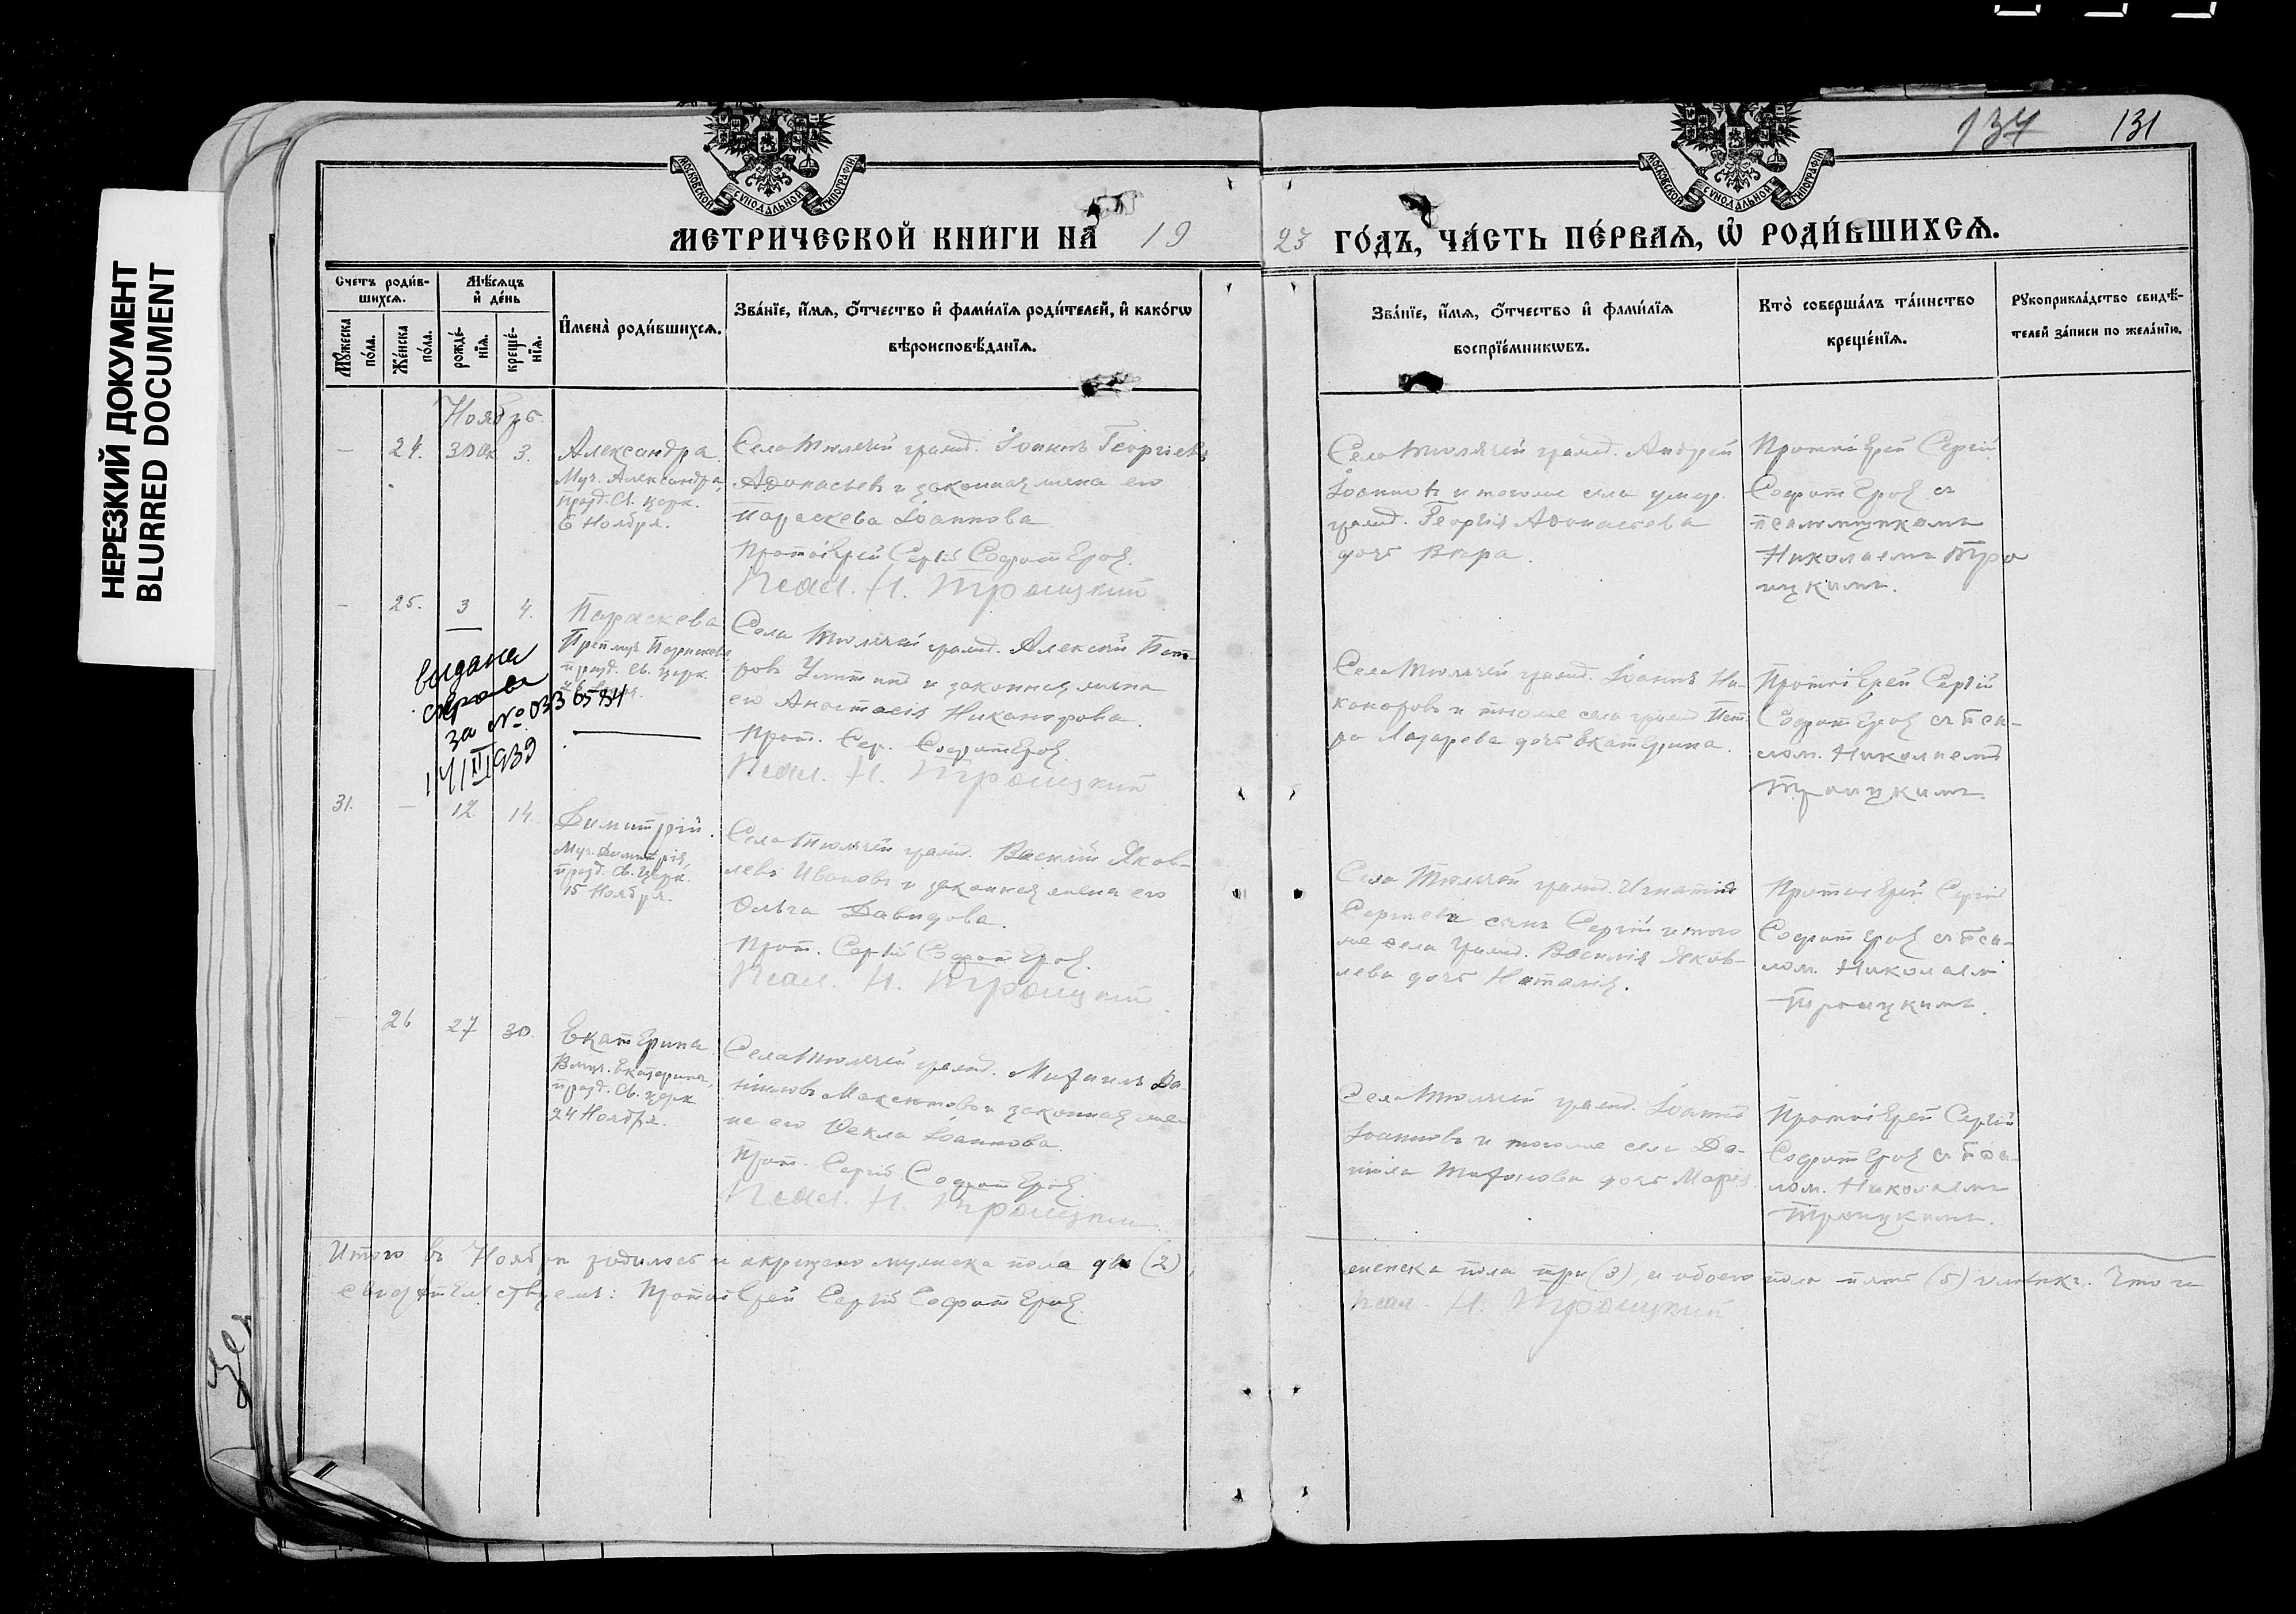 НЕРЕЗКИЙ ДОКУМЕНТ
BLURRED DOCUMENT
134 131
МОСКОВСКОЙ СѴНОДАЛЬНОЙ ТИПОГРАФІИ
МОСКОВСКОЙ СѴНОДАЛЬНОЙ ТИПОГРАФІИ
МЕТРИЧЕСКОЙ КНИГИ НА 19
23 ГО́ДЪ, ЧА́СТЬ ПЕ́РВАѦ, Ѡ҆ РОДИ́ВШИХСѦ.
Счетъ роди́в-
шихсѧ.
Мꙋжеска по́ла.
Же́нска по́ла.
Мѣ́сѧцъ
и҆ де́нь
рожде́-
нїѧ.
креще́-
нїѧ.
И҆мена̀ роди́вшихсѧ.
Зва́нїе, и҆́мѧ, ѻ҆́тчество и҆ фами́лїѧ роди́телей, и҆ како́гѡ
вѣроисповѣ́данїѧ.
Зва́нїе, и҆́мѧ, ѻ҆́тчество и҆ фами́лїѧ
воспрїе́мникѡвъ.
Кто̀ соверша́лъ та́инство
креще́нїѧ.
Рꙋкоприкла́дство свидѣ́-
телей за́писи по жела́нїю.
Ноябрь
— 24. 30 Ок 3. Александра
Муч. Александра,
празд. Св. церк.
6 Ноября.
Села Тюлячей гражд. Іоаннъ Георгіевъ
Аѳонасьевъ и законная жена его
Параскева Іоаннова
Протоіерей Сергій Софотеровъ
Псал. Н. Троицкий
Села Тюлячей гражд. Андрей
Іоанновъ и тогоже села умер.
гражд. Георгія Аѳонасьева
дочь Вѣра.
Протоіерей Сергій
Софотеровъ съ
псаломщикомъ
Николаемъ Тро
ицкимъ.
— 25. 3 4. Параскева
Препмуч. Параскевы
празд. Св. церк.
Села Тюлячей гражд. Алексій Пет-
ровъ и законная жена
его Анастасія Никанорова.
Прот. Сер. Софотеровъ
Псал. Н. Троицкий
Села Тюлячей гражд. Іоаннъ Ни-
каноровъ и тогоже села гражд. Пет-
ра Лазарева дочь Екатерина.
Протоіерей Сергій
Софотеровъ съ пса-
лом. Николаемъ
Троицкимъ.
выдана
справка
за № 033 6594
14/II 1939
31. — 12 14. Димитрій.
Муч. Димитрія,
празд. Св. Церк.
15 Ноября.
Села Тюлячей гражд. Василій Яков-
левъ Ивановъ и законная жена его
Ольга Давидова.
Прот. Сергій Софотеровъ.
Псал. Н. Троицкий
Села Тюлячей гражд. Игнатія
Сергеева сынъ Сергій и того
же села гражд. Василія Яков-
лева дочь Наталія.
Протоіерей Сергій
Софотеровъ съ пса-
лом. Николаемъ
Троицкимъ.
— 26 27 30. Екатерина
Вмуч. Екатерины,
празд. Св. церк
24 Ноября.
Села Тюлячей гражд. Михаилъ Да-
ніиловъ и законная же-
на его Ѳекла Іоаннова.
Прот. Сергій Софотеровъ.
Псал. Н. Троицкий
Села Тюлячей гражд. Іоаннъ
Іоанновъ и тогоже села Да-
ніила дочь Марія
Протоіерей Сергій
Софотеровъ съ пса-
лом. Николаемъ
Троицкимъ.
Итого въ Ноябрѣ родилось и окрещено мужеска пола два (2),
женска пола три (3), а обоего пола пять (5) человѣкъ. Что и
свидѣтельствуемъ: Протоіерей Сергій Софотеровъ.
Псал. Н. Троицкий